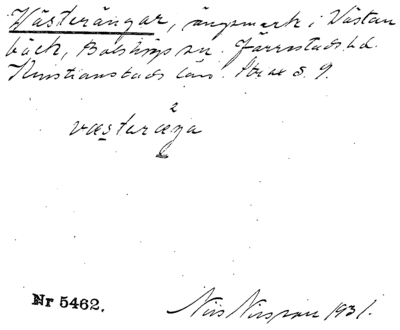 Västerängar, ängsmark i Västan
bäck, Bolshögs sn. Järrestads hd.
Kristianstads län. Strax S. 9.
2
væsteræŋa
Nr 5462.
Nils Nilsson 1931.